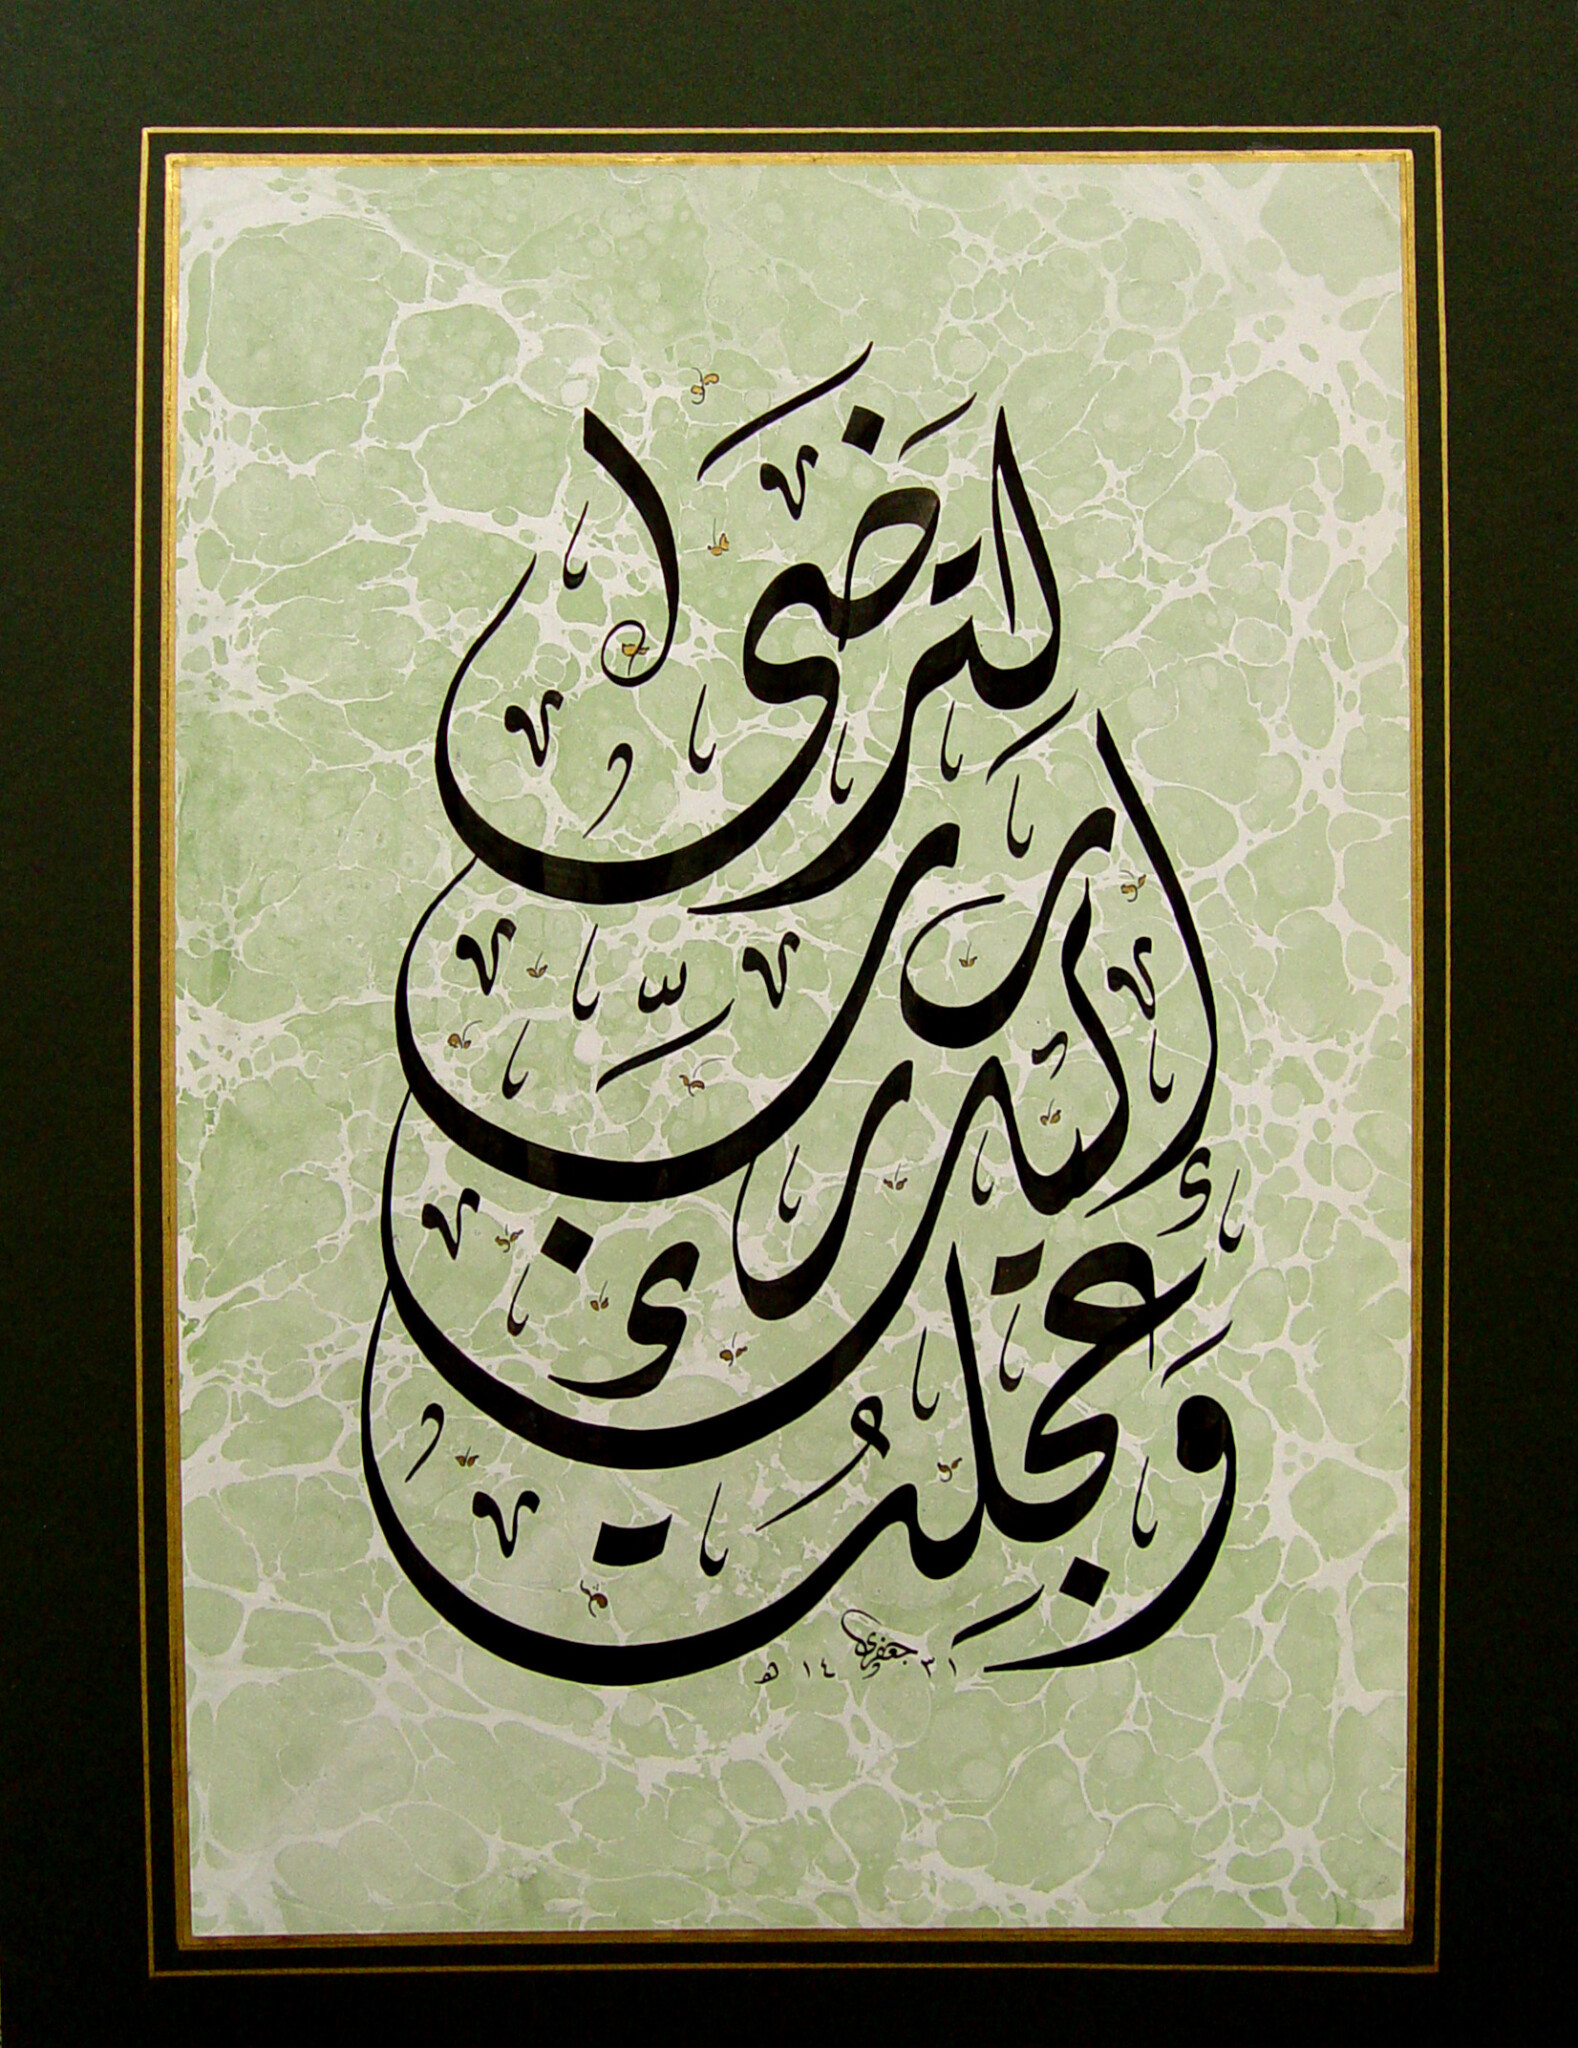 وَعَجِلْتُ
إِلَيْكَ
رَبِّ
لِتَرْضَى
جعفري ١٤٣١ هـ